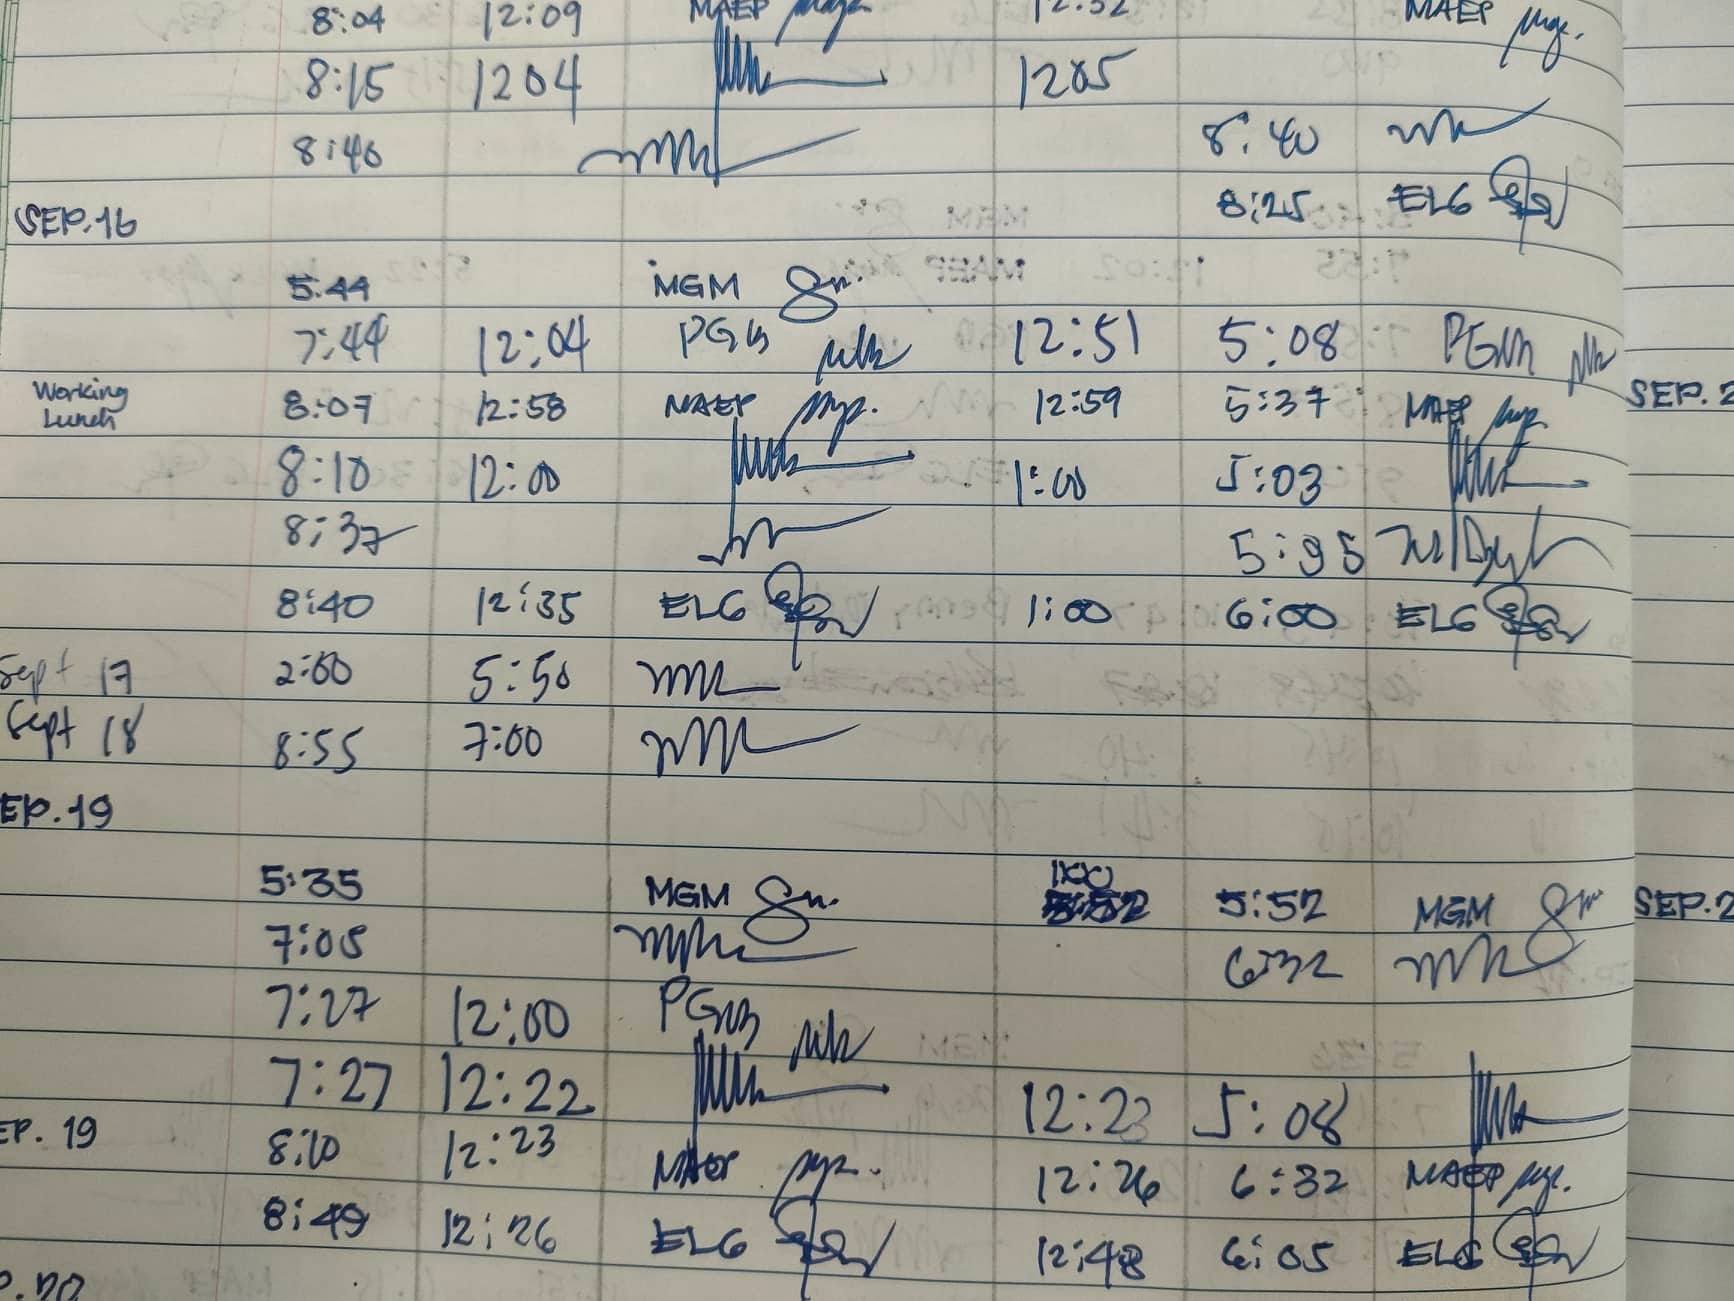 8:04 12:09 MAEP 12:52 MAEP
8:15 1204 1205
8:40 8:40
SEP.16 8:25 ELG
5:44 MGM
7:44 12:04 12:51 5:08
Working Lunch 8:07 12:58 MAEP 12:59 5:37 MAEP
8:10 12:00 1:00 5:03
8:37
8:40 12:35 ELG 1:00 6:00 ELG
Sept 17 2:00 5:50
Sept 18 8:55 7:00
EP.19
5:35 MGM 1:00 5:52 MGM
7:05 6:32
7:27 12:00
7:27 12:22 12:23 5:08
EP. 19 8:10 12:23 MAEP 12:26 6:32 MAEP
8:49 12:26 ELG 12:48 6:05 ELG
P.20
SEP.2
SEP.2